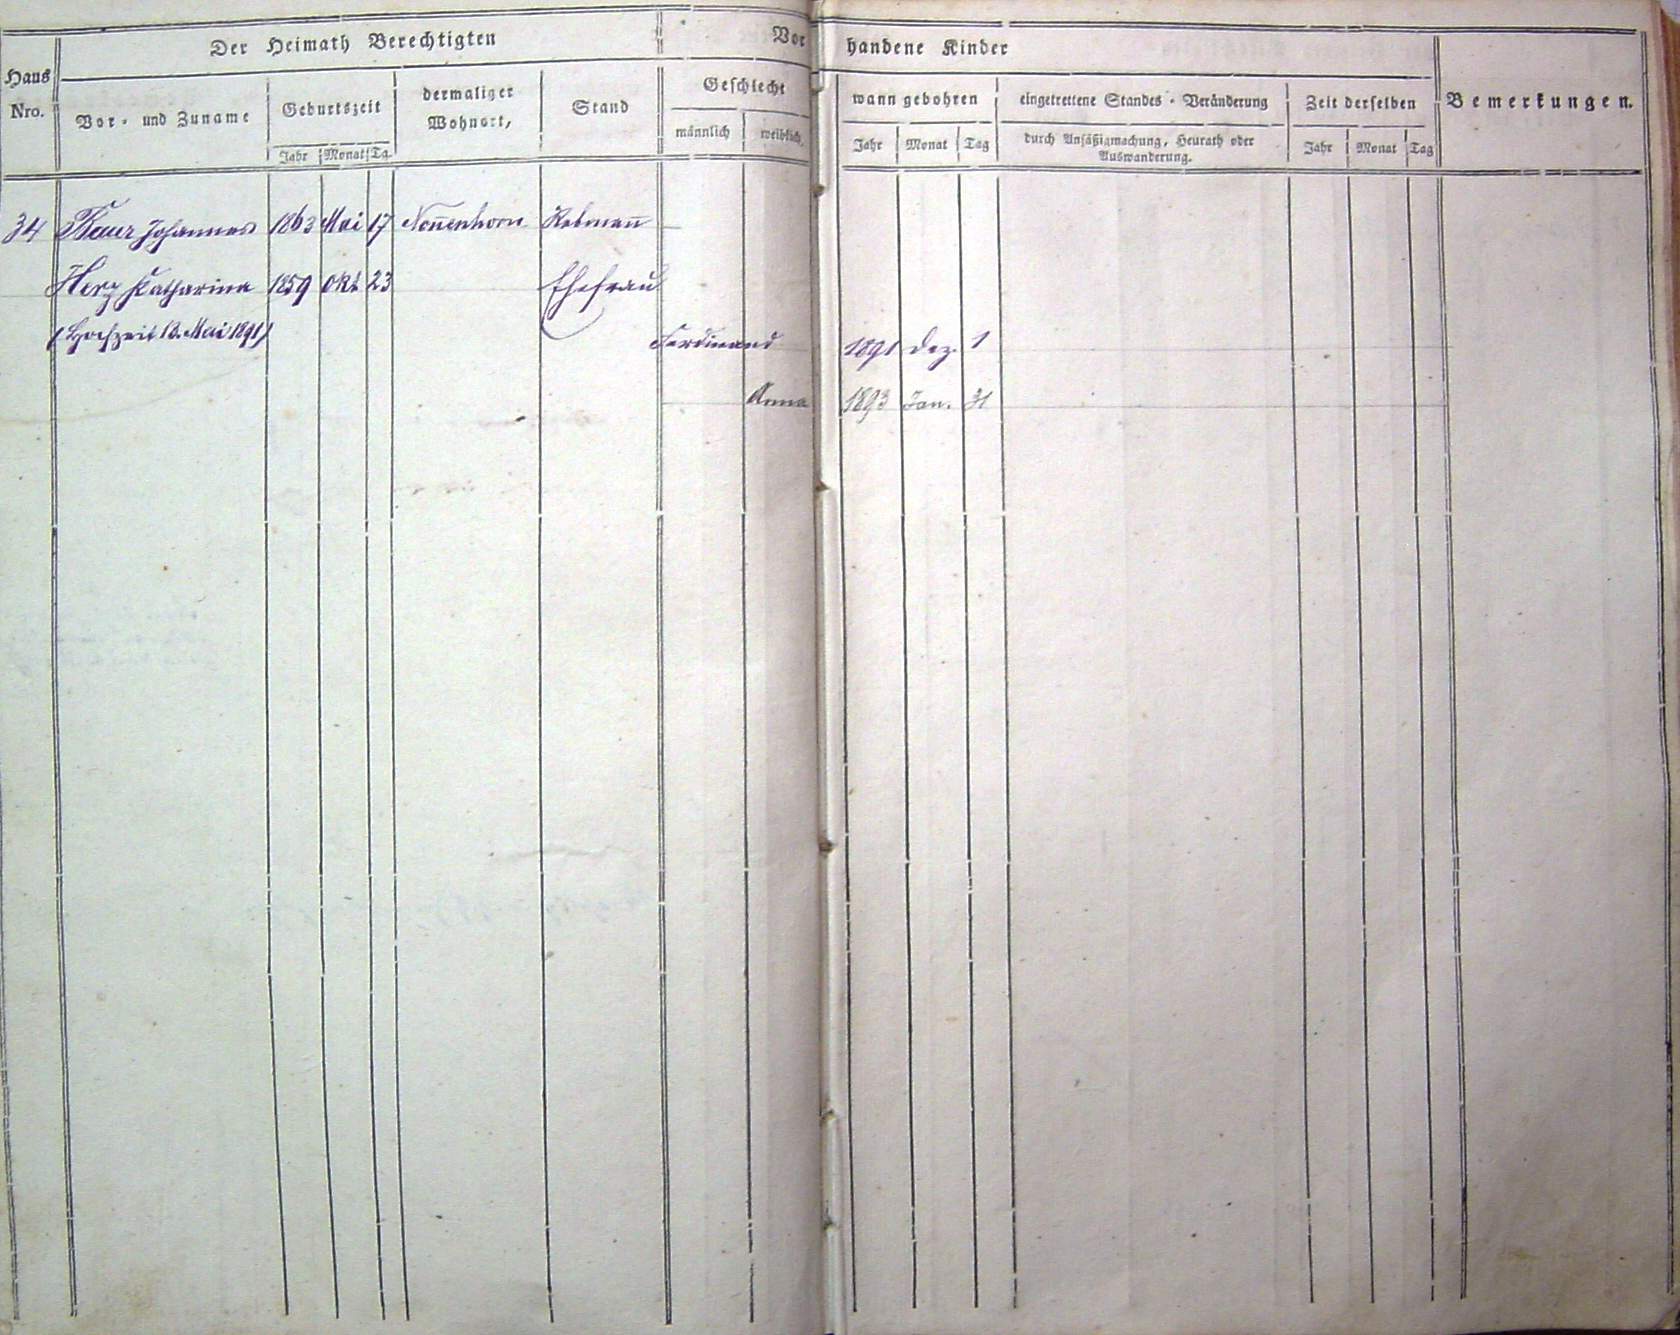 Der Heimath Berechtigten
Vorhandene Kinder
Haus Nro.
Vor- und Zuname
Geburtszeit
Jahr Monat Tg
dermaliger Wohnort,
Stand
Geschlecht
männlich weiblich
wann gebohren
Jahr Monat Tag
eingetrettene Standes-Veränderung
durch Ansäßigmachung, Heurath oder
Auswanderung.
Zeit derselben
Jahr Monat Tag
Bemerkungen.
34 Johannes 1863 Mai 17 Nonnenhorn Rebmann
Herz Katharina 1859 Okt 23 Ehefrau
(Hochzeit 13. Mai 1891)
Ferdinand 1891 Dez. 1
Anna 1893 Jan. 31